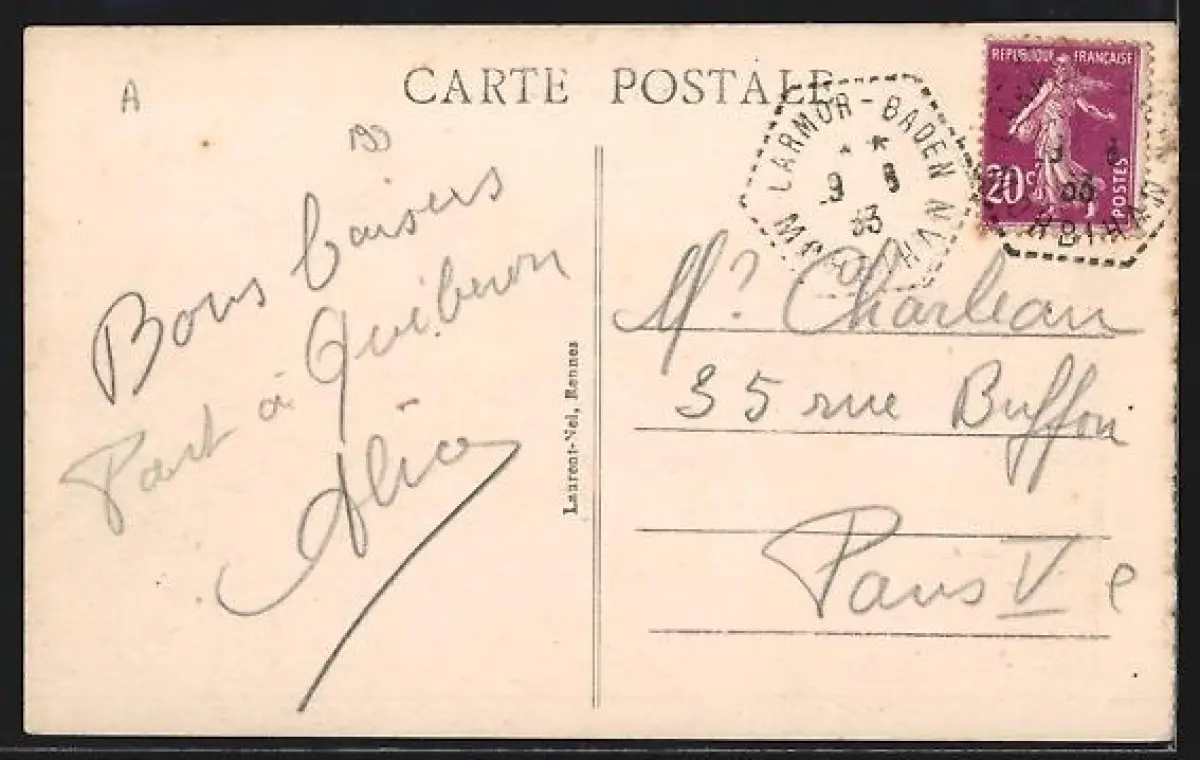 CARTE POSTALE
A
199
Bons baisers
Part à Quiberon
Alice
Laurent-Nel, Rennes
LARMOR-BADEN
* *
9 8
33
MORBIHAN
REPUBLIQUE FRANÇAISE
20c
POSTES
33
RBIHAN
Mr. Charleau
35 rue Buffon
Paris V e